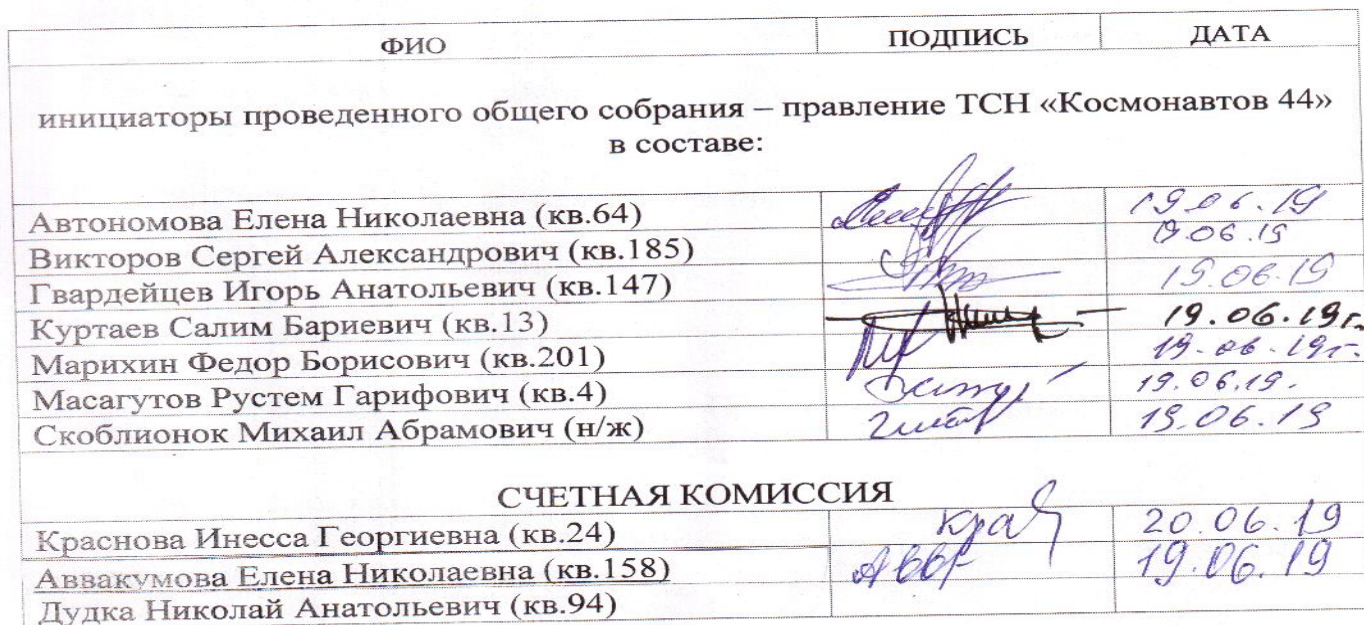 ФИО ПОДПИСЬ ДАТА
инициаторы проведенного общего собрания – правление ТСН «Космонавтов 44»
в составе:
Автономова Елена Николаевна (кв.64) 19.06.19
Викторов Сергей Александрович (кв.185) 19.06.19
Гвардейцев Игорь Анатольевич (кв.147) 19.06.19
Куртаев Салим Бариевич (кв.13) 19.06.19г.
Марихин Федор Борисович (кв.201) 19.06.19г.
Масагутов Рустем Гарифович (кв.4) 19.06.19.
Скоблионок Михаил Абрамович (н/ж) 19.06.19
СЧЕТНАЯ КОМИССИЯ
Краснова Инесса Георгиевна (кв.24) 20.06.19
Аввакумова Елена Николаевна (кв.158) 19.06.19
Дудка Николай Анатольевич (кв.94)